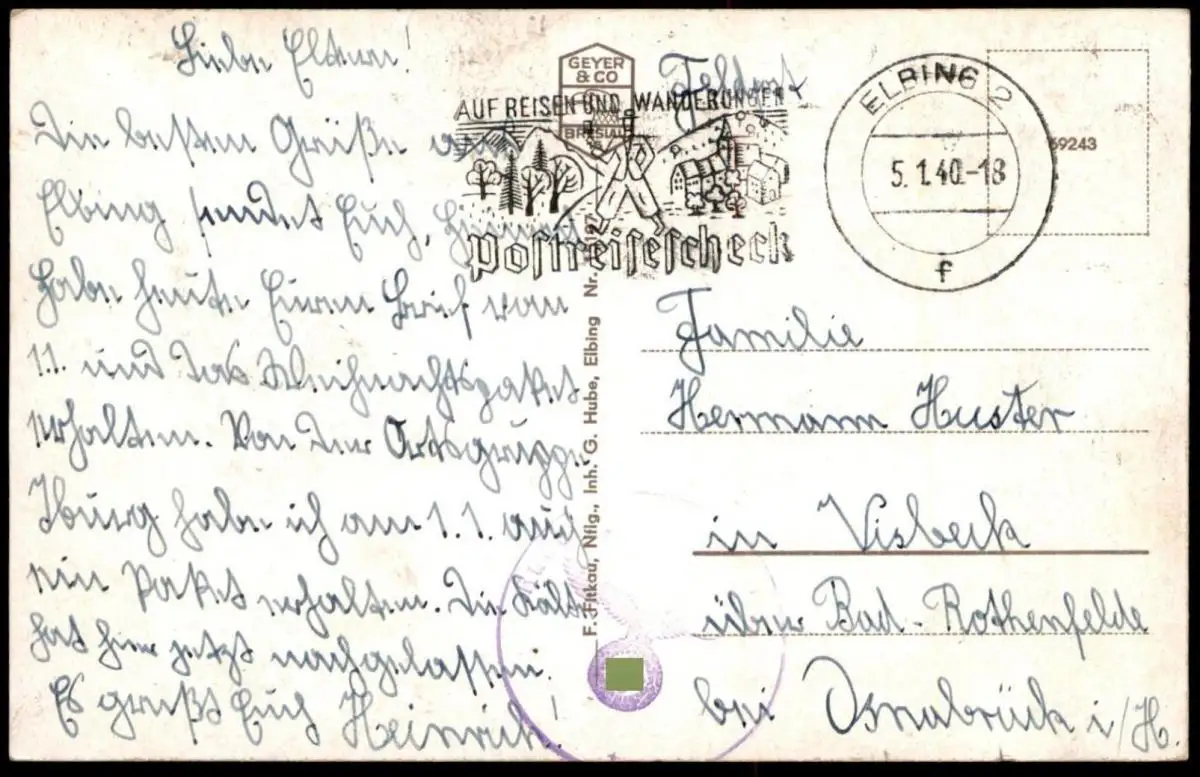 Liebe Eltern!
Die besten Grüße aus
Elbing sendet Euch, Heinrich
habe heute Euren Brief vom
1.1. und das Weihnachtspaket
erhalten. Von der Ortsgruppe
Iburg habe ich am 1.1. auch
ein Paket erhalten. Die Kälte
hat hier jetzt nachgelassen.
Es grüßt Euch Heinrich!
GEYER
& CO
BRESLAU
F. Fitkau, Nflg., Inh. G. Hube, Elbing Nr.
Feldpost
AUF REISEN UND WANDERUNGEN
Postreisescheck
ELBING 2
5.1.40.-18
f
69243
Familie
Hermann Huster
in Visbeck
über Bad-Rothenfelde
bei Osnabrück i/H.